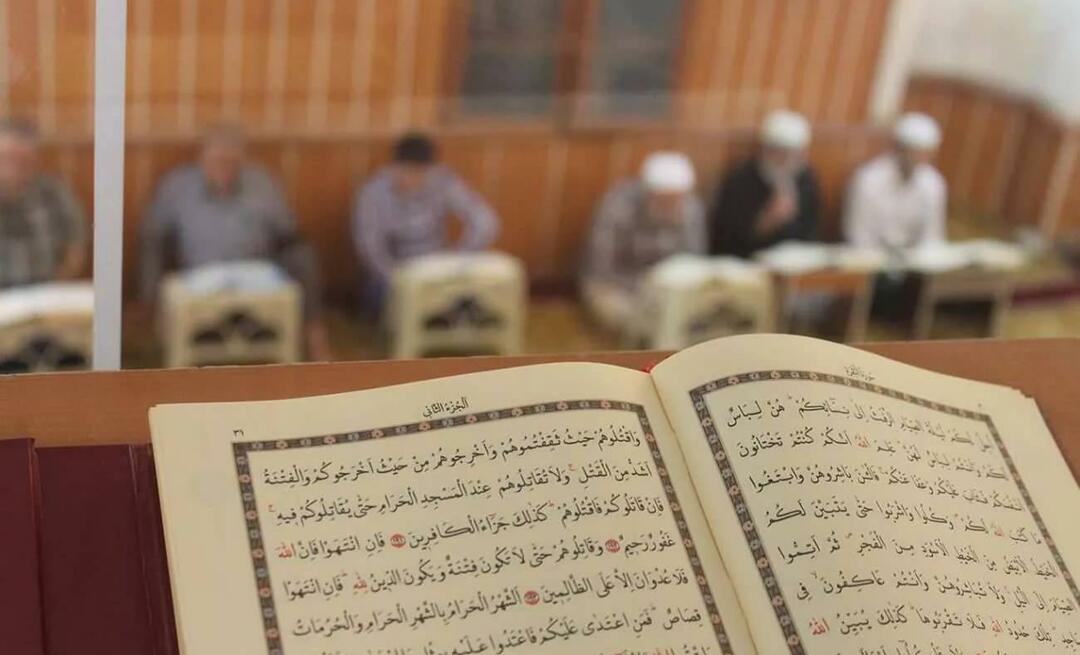 سورة البقرة
اُحِلَّ لَكُمْ لَيْلَةَ الصِّيَامِ الرَّفَثُ اِلٰى نِسَائِكُمْ هُنَّ لِبَاسٌ
لَكُمْ وَاَنْتُمْ لِبَاسٌ لَهُنَّ عَلِمَ اللهُ اَنَّكُمْ كُنْتُمْ تَخْتَانُونَ
اَنْفُسَكُمْ فَتَابَ عَلَيْكُمْ وَعَفَا عَنْكُمْ فَالْئٰنَ بَاشِرُوهُنَّ وَابْتَغُوا
مَا كَتَبَ اللهُ لَكُمْ وَكُلُوا وَاشْرَبُوا حَتّٰى يَتَبَيَّنَ لَكُمُ
الْخَيْطُ الْاَبْيَضُ مِنَ الْخَيْطِ الْاَسْوَدِ مِنَ الْفَجْرِ ثُمَّ اَتِمُّوا
الصِّيَامَ اِلَى الَّيْلِ وَلَا تُبَاشِرُوهُنَّ وَاَنْتُمْ عَاكِفُونَ فِي
تِلْكَ حُدُودُ اللهِ فَلَا تَقْرَبُوهَا كَذٰلِكَ يُبَيِّنُ اللهُ
اَلْجُزْءُ الثَّانِي
وَاقْتُلُوهُمْ حَيْثُ ثَقِفْتُمُوهُمْ وَاَخْرِجُوهُمْ مِنْ حَيْثُ اَخْرَجُوكُمْ وَالْفِتْنَةُ
اَشَدُّ مِنَ الْقَتْلِ وَلَا تُقَاتِلُوهُمْ عِنْدَ الْمَسْجِدِ الْحَرَامِ حَتّٰى يُقَاتِلُوكُمْ فِيهِ
فَاِنْ قَاتَلُوكُمْ فَاقْتُلُوهُمْ كَذٰلِكَ جَزَاءُ الْكَافِرِينَ فَاِنِ انْتَهَوْا فَاِنَّ اللهَ
غَفُورٌ رَحِيمٌ وَقَاتِلُوهُمْ حَتّٰى لَا تَكُونَ فِتْنَةٌ وَيَكُونَ الدِّينُ لِلهِ فَاِنِ انْتَهَوْا
فَلَا عُدْوَانَ اِلَّا عَلَى الظَّالِمِينَ اَلشَّهْرُ الْحَرَامُ بِالشَّهْرِ الْحَرَامِ وَالْحُرُمَاتُ
قِصَاصٌ فَمَنِ اعْتَدٰى عَلَيْكُمْ فَاعْتَدُوا عَلَيْهِ بِمِثْلِ مَا